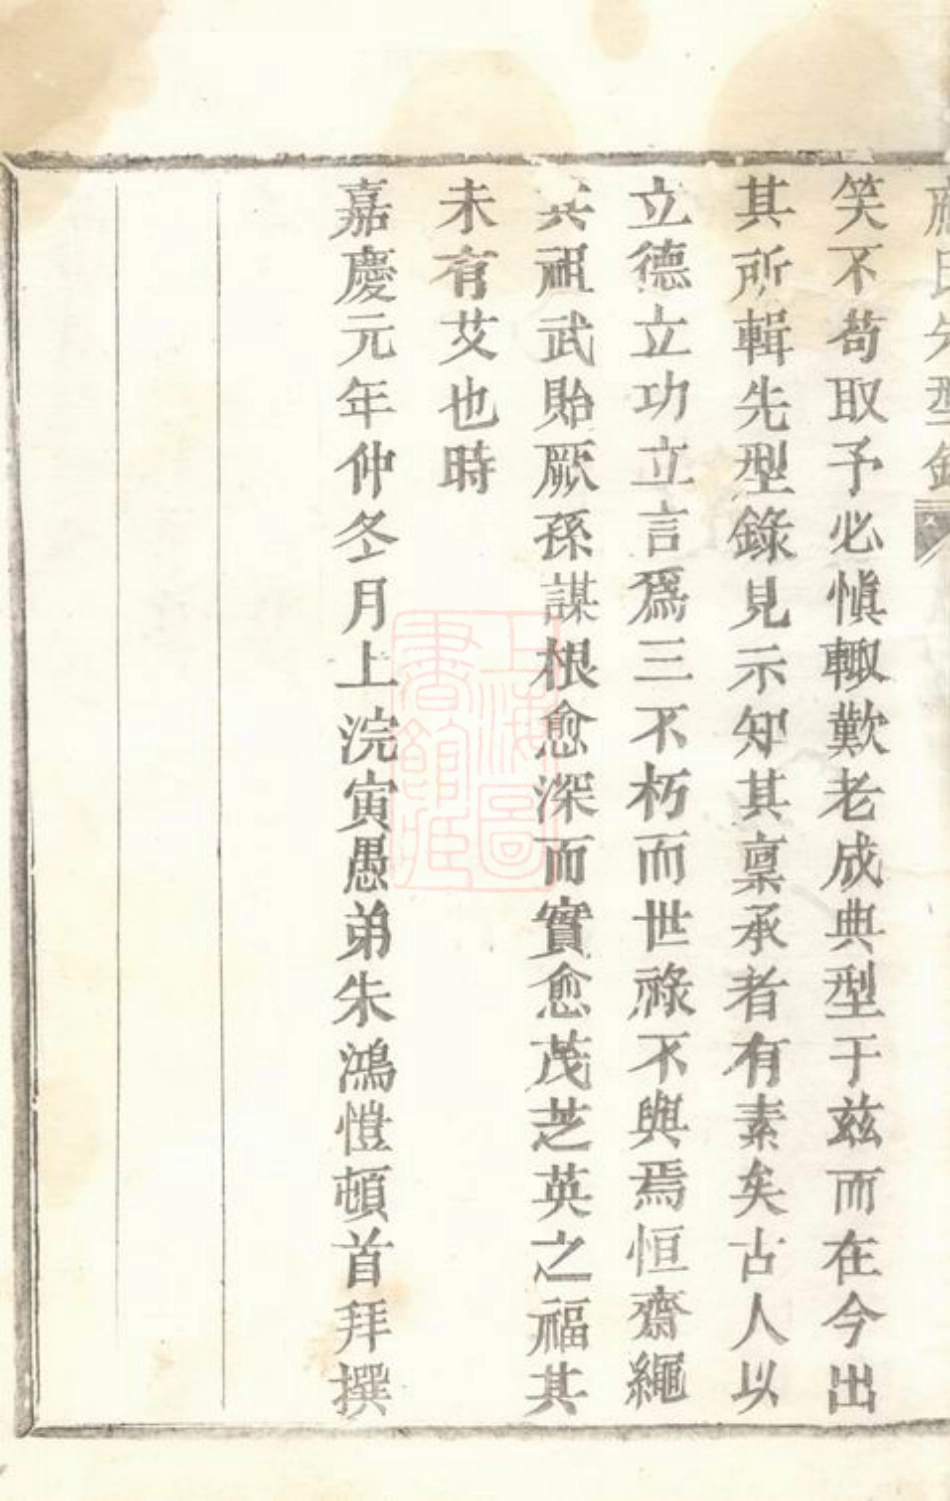 氏先型錄
笑不苟取予必慎輙歎老成典型于兹而在今出
其所輯先型錄見示知其稟承者有素矣古人以
立德立功立言爲三不朽而世祿不與焉恒齋繩
其祖武貽厥孫謀根愈深而實愈茂芝英之福其
未有艾也時
嘉慶元年仲冬月上浣寅愚弟朱鴻愷頓首拜撰
上海圖書館藏